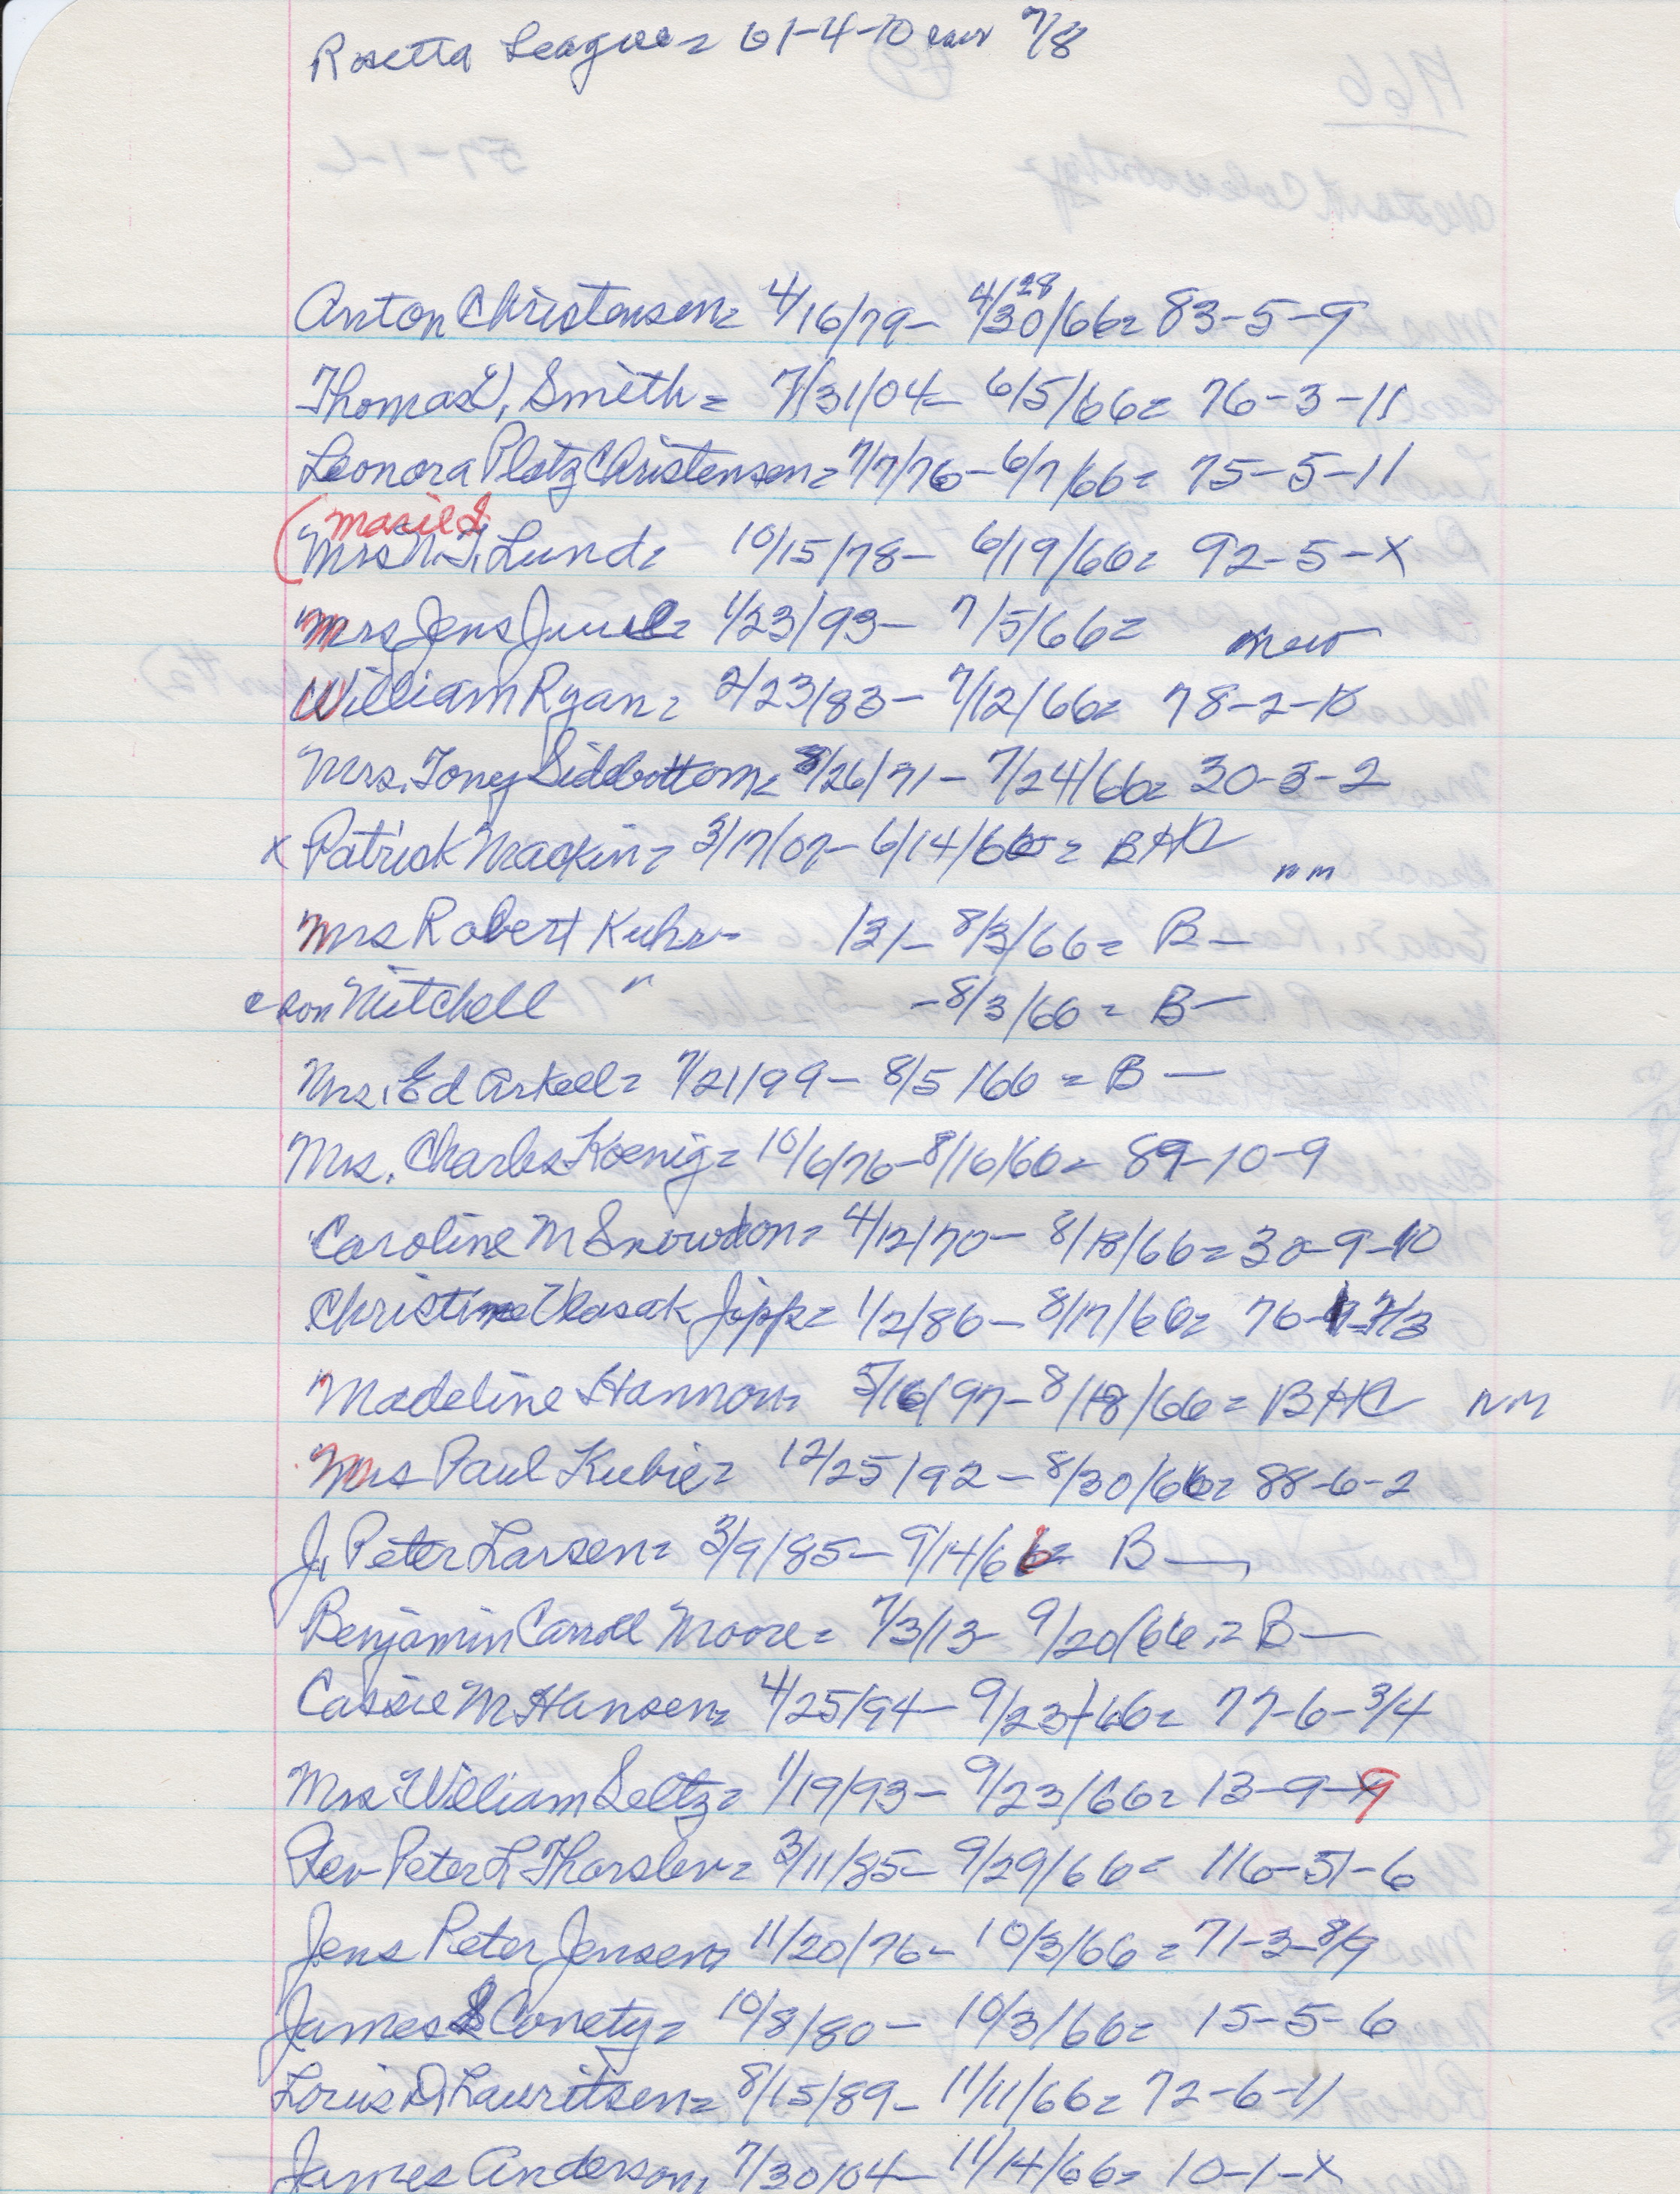 Rosetta League = 61-4-10 7/8
Anton Christensen = 4/16/79 - 4/30/66 = 83-5-9
28
Thomas V. Smith = 7/31/04 - 6/5/66 = 76-3-11
Leonora Plotz Christensen = 7/7/76 - 6/7/66 = 75-5-11
Marie S
Mrs N. T. Lund = 10/15/78 - 6/19/66 = 92-5-X
Mrs Jens Juul = 1/23/93 - 7/5/66 = new
William Ryan = 2/23/83 - 7/12/66 = 78-2-10
Mrs. Tony Sidebottom = 8/26/71 - 7/24/66 = 30-3-2
x Patrick Mackin = 3/17/07 - 6/14/66 = BHC nm
Mrs Robert Kuhr - 131 - 8/3/66 = B -
son Mitchell " - 8/3/66 = B -
Mrs. Ed Arkell = 7/21/99 - 8/5/66 = B -
Mrs. Charles Koenig = 10/6/76 - 8/16/66 = 89-10-9
Caroline M Snowdon = 4/12/70 - 8/18/66 = 30-9-10
Christine Vlasak Jipp = 1/2/86 - 8/17/66 = 76- 2/3
Madeline Hannon = 5/16/97 - 8/18/66 = BHC NM
Mrs Paul Kubie = 12/25/92 - 8/30/66 = 88-6-2
J. Peter Larsen = 3/9/85 - 9/14/66 = B -
Benjamin Carroll Moore = 7/3/13 - 9/20/66 = B -
Cassie M Hansen = 4/25/94 - 9/23/66 = 77-6-3/4
Mrs. William Seltz = 1/19/93 - 9/23/66 = 13-9-9
Rev Peter L Thorslev = 3/11/85 - 9/29/66 = 116-51-6
Jens Peter Jensen = 11/20/76 - 10/3/66 = 71-3-8/9
James S Conety = 10/8/80 - 10/3/66 = 15-5-6
Loris D. Lauritsen = 8/15/89 - 11/11/66 = 72-6-11
James Anderson = 7/30/04 - 11/14/66 = 10-1-X